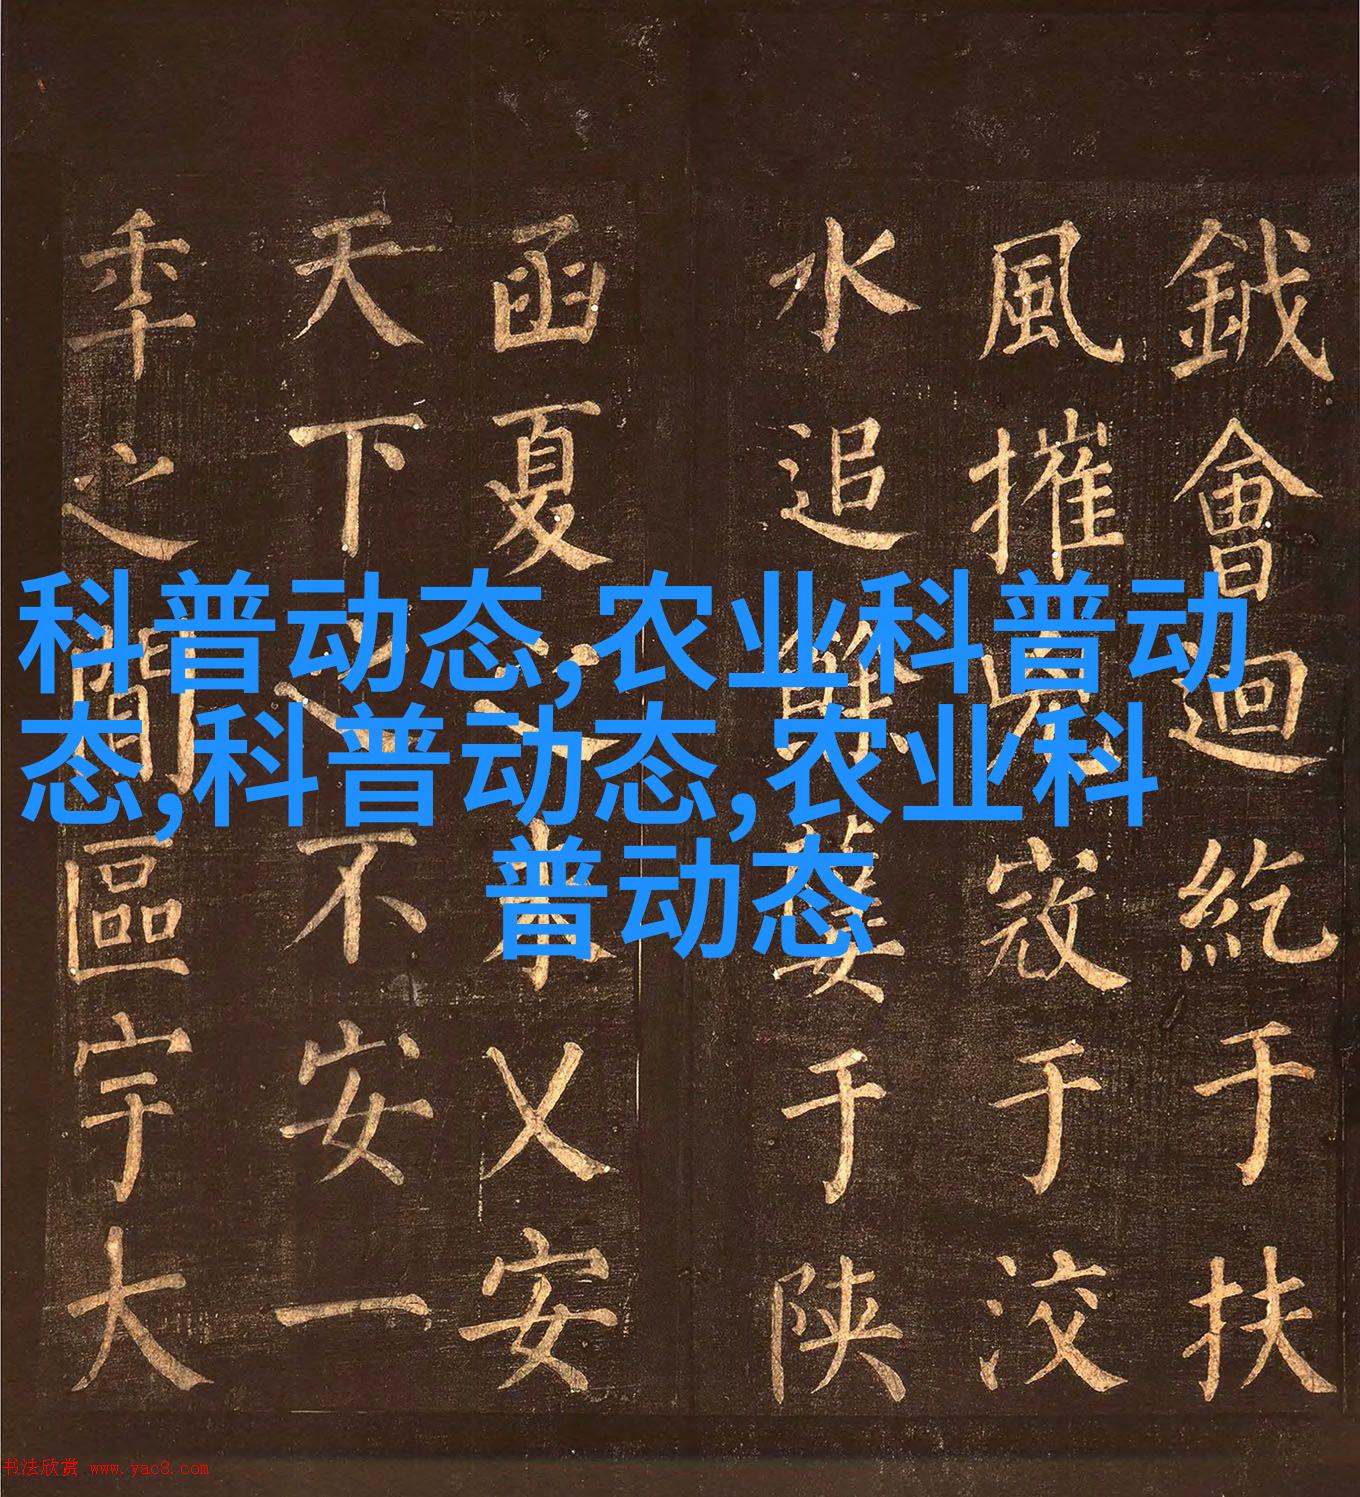 鉞會迴紇于扶
風摧寇于洨
水追餘于陝
函夏之未乂安
天下之不安一
秊之間區宇大
科普动态,农业科普动
态,科普动态,农业科
普动态
书法欣赏 www.yac8.com